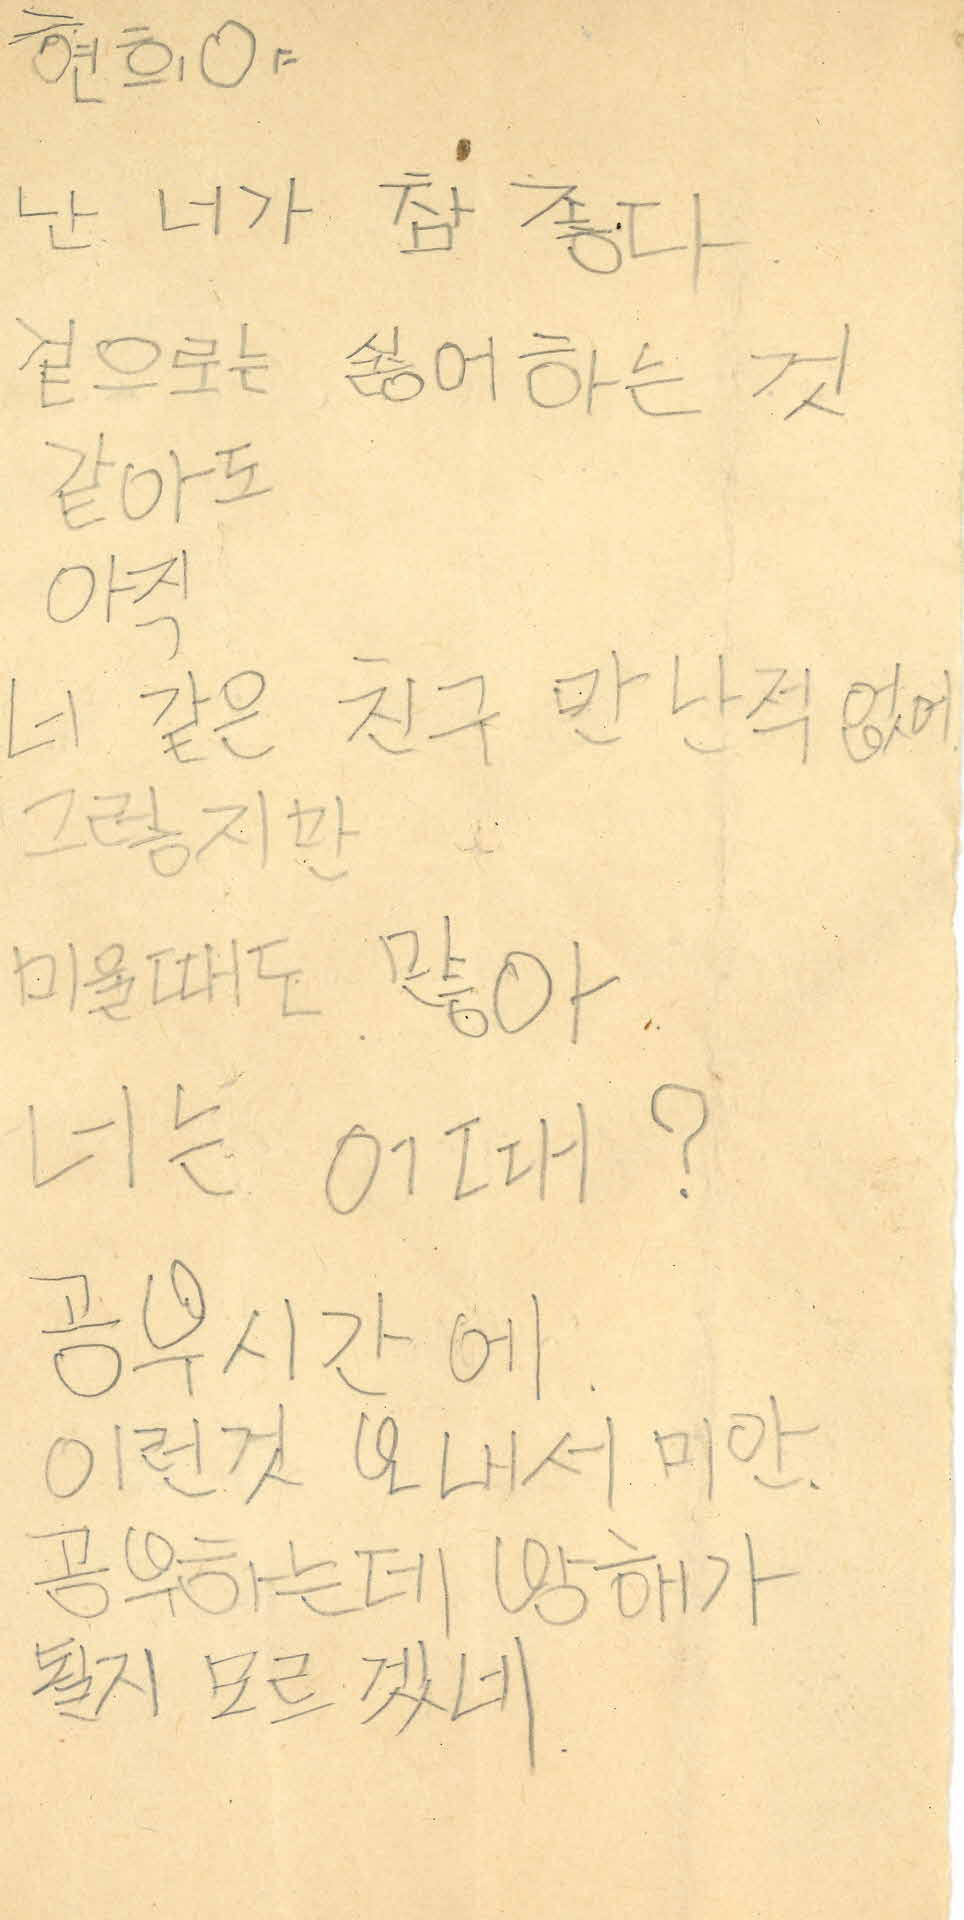 현희야
난 너가 참 좋다
겉으로는 싫어하는 것
같아도
아직
너 같은 친구 만난적 없어.
그렇지만
미울때도 많아
너는 어때?
공부시간에.
이런것 보내서 미안.
공부하는데 방해가
될지 모르겠네.